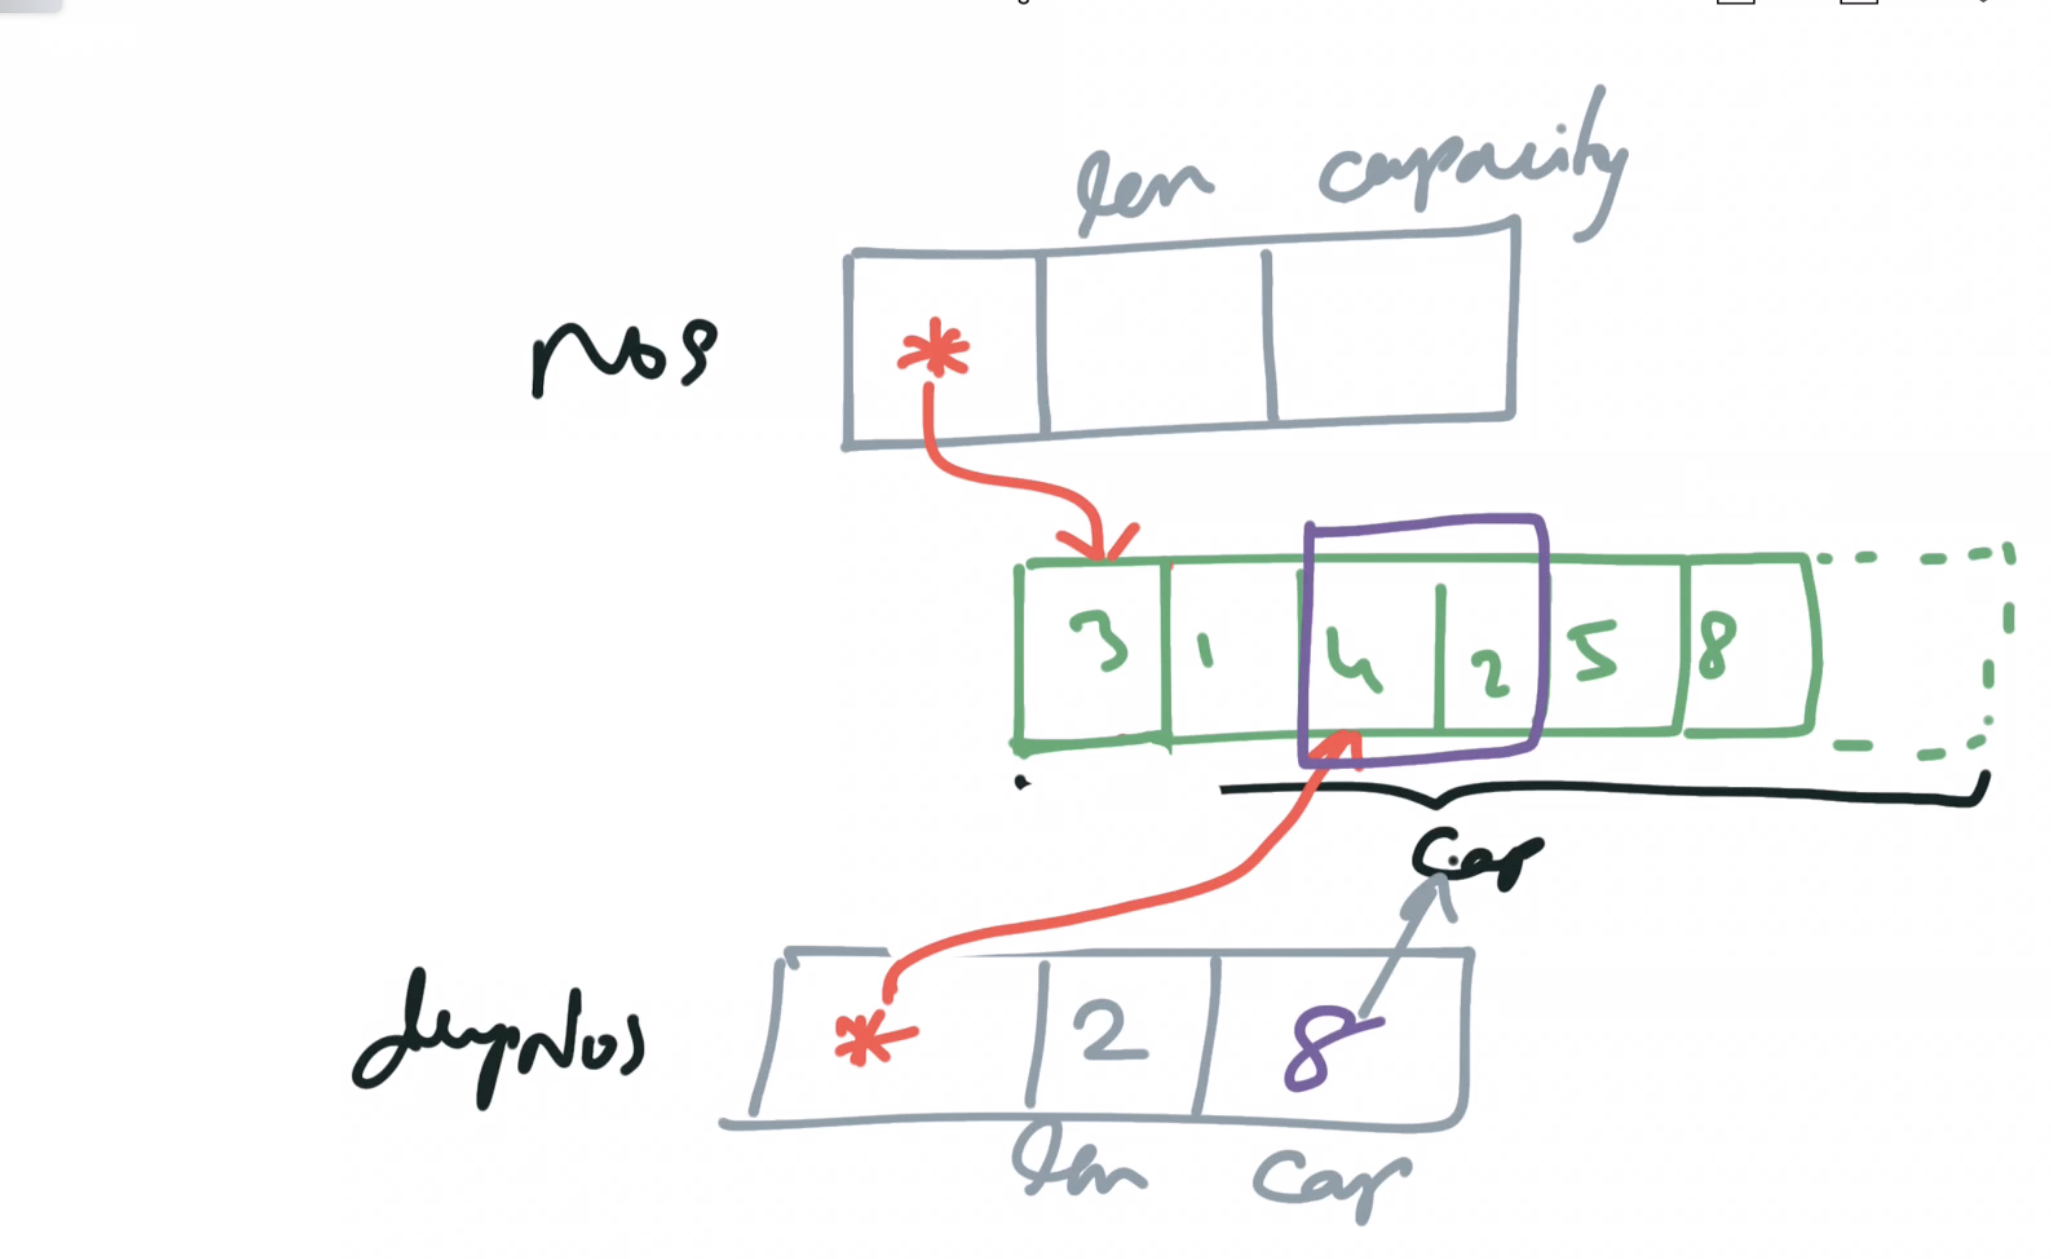 len capacity
nos *
3 1 4 2 5 8
cap
dupNos * 2 8
len cap